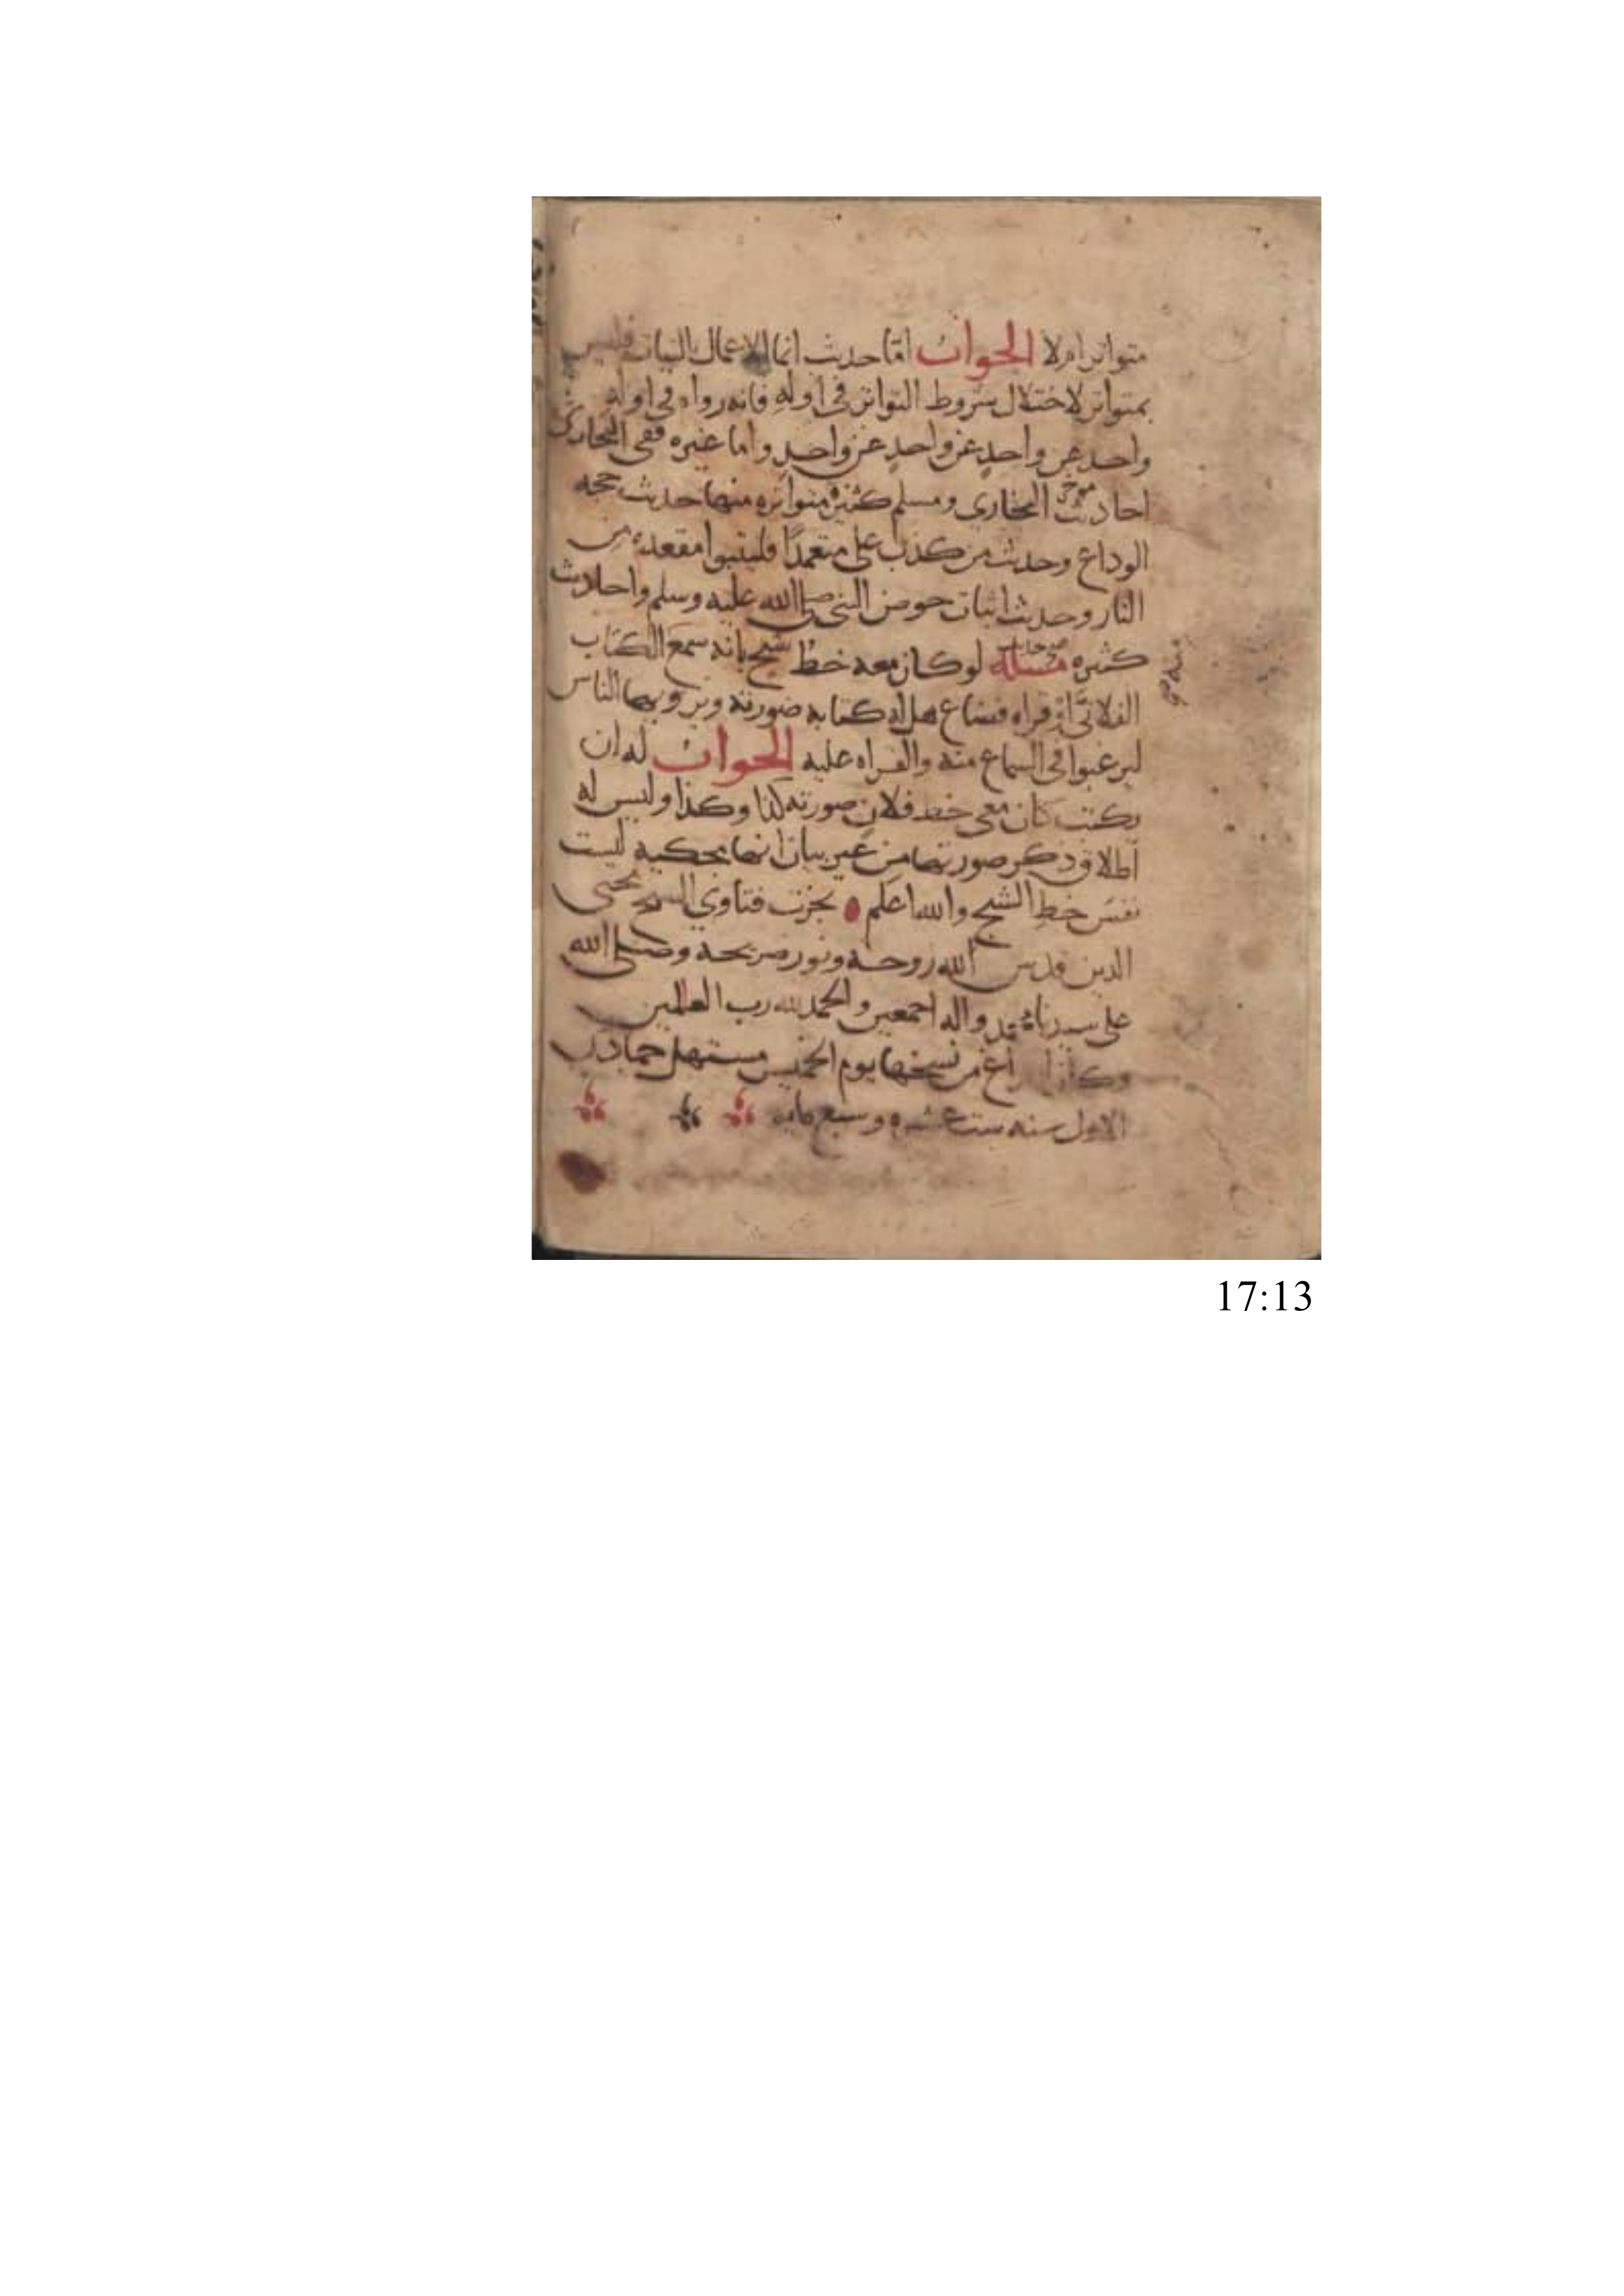 متواتر ام لا الجواب اما حديث انما الاعمال بالنيات فليس
بمتواتر لاختلال شروط التواتر في اوله فانه رواه في اوله
واحد عن واحدٍ عن واحدٍ عن واحدٍ واما غيره ففي البخاري
احاديث البخاري ومسلم كثيرة متواتره منها حديث حجه
الوداع وحديث من كذب علي متعمدًا فليتبوا مقعده من
النار وحديث اثبات حوض النبي صلى الله عليه وسلم واحاديث
كثيره مسله لو كان معه خط شيخ بانه سمع الكتاب
الفلاني او قراه فضاع هل له كتابه صورته ويرويها الناس
ليرغبوا في السماع منه والقراه عليه الجواب له ان
يكتب كان معي خط فلان صورته كذا وكذا وليس له
اطلاق ذكر صورتها من غير بيان انها محكيه ليست
نفس خط الشيخ والله اعلم نجزت فتاوي الشيخ محيى
الدين قدس الله روحه ونور ضريحه وصلى الله
على سيدنا محمد واله اجمعين والحمد لله رب العالمين
من نسخها يوم الخميس مستهل جمادى
الاول سنه ست عشره وسبع مايه
17:13